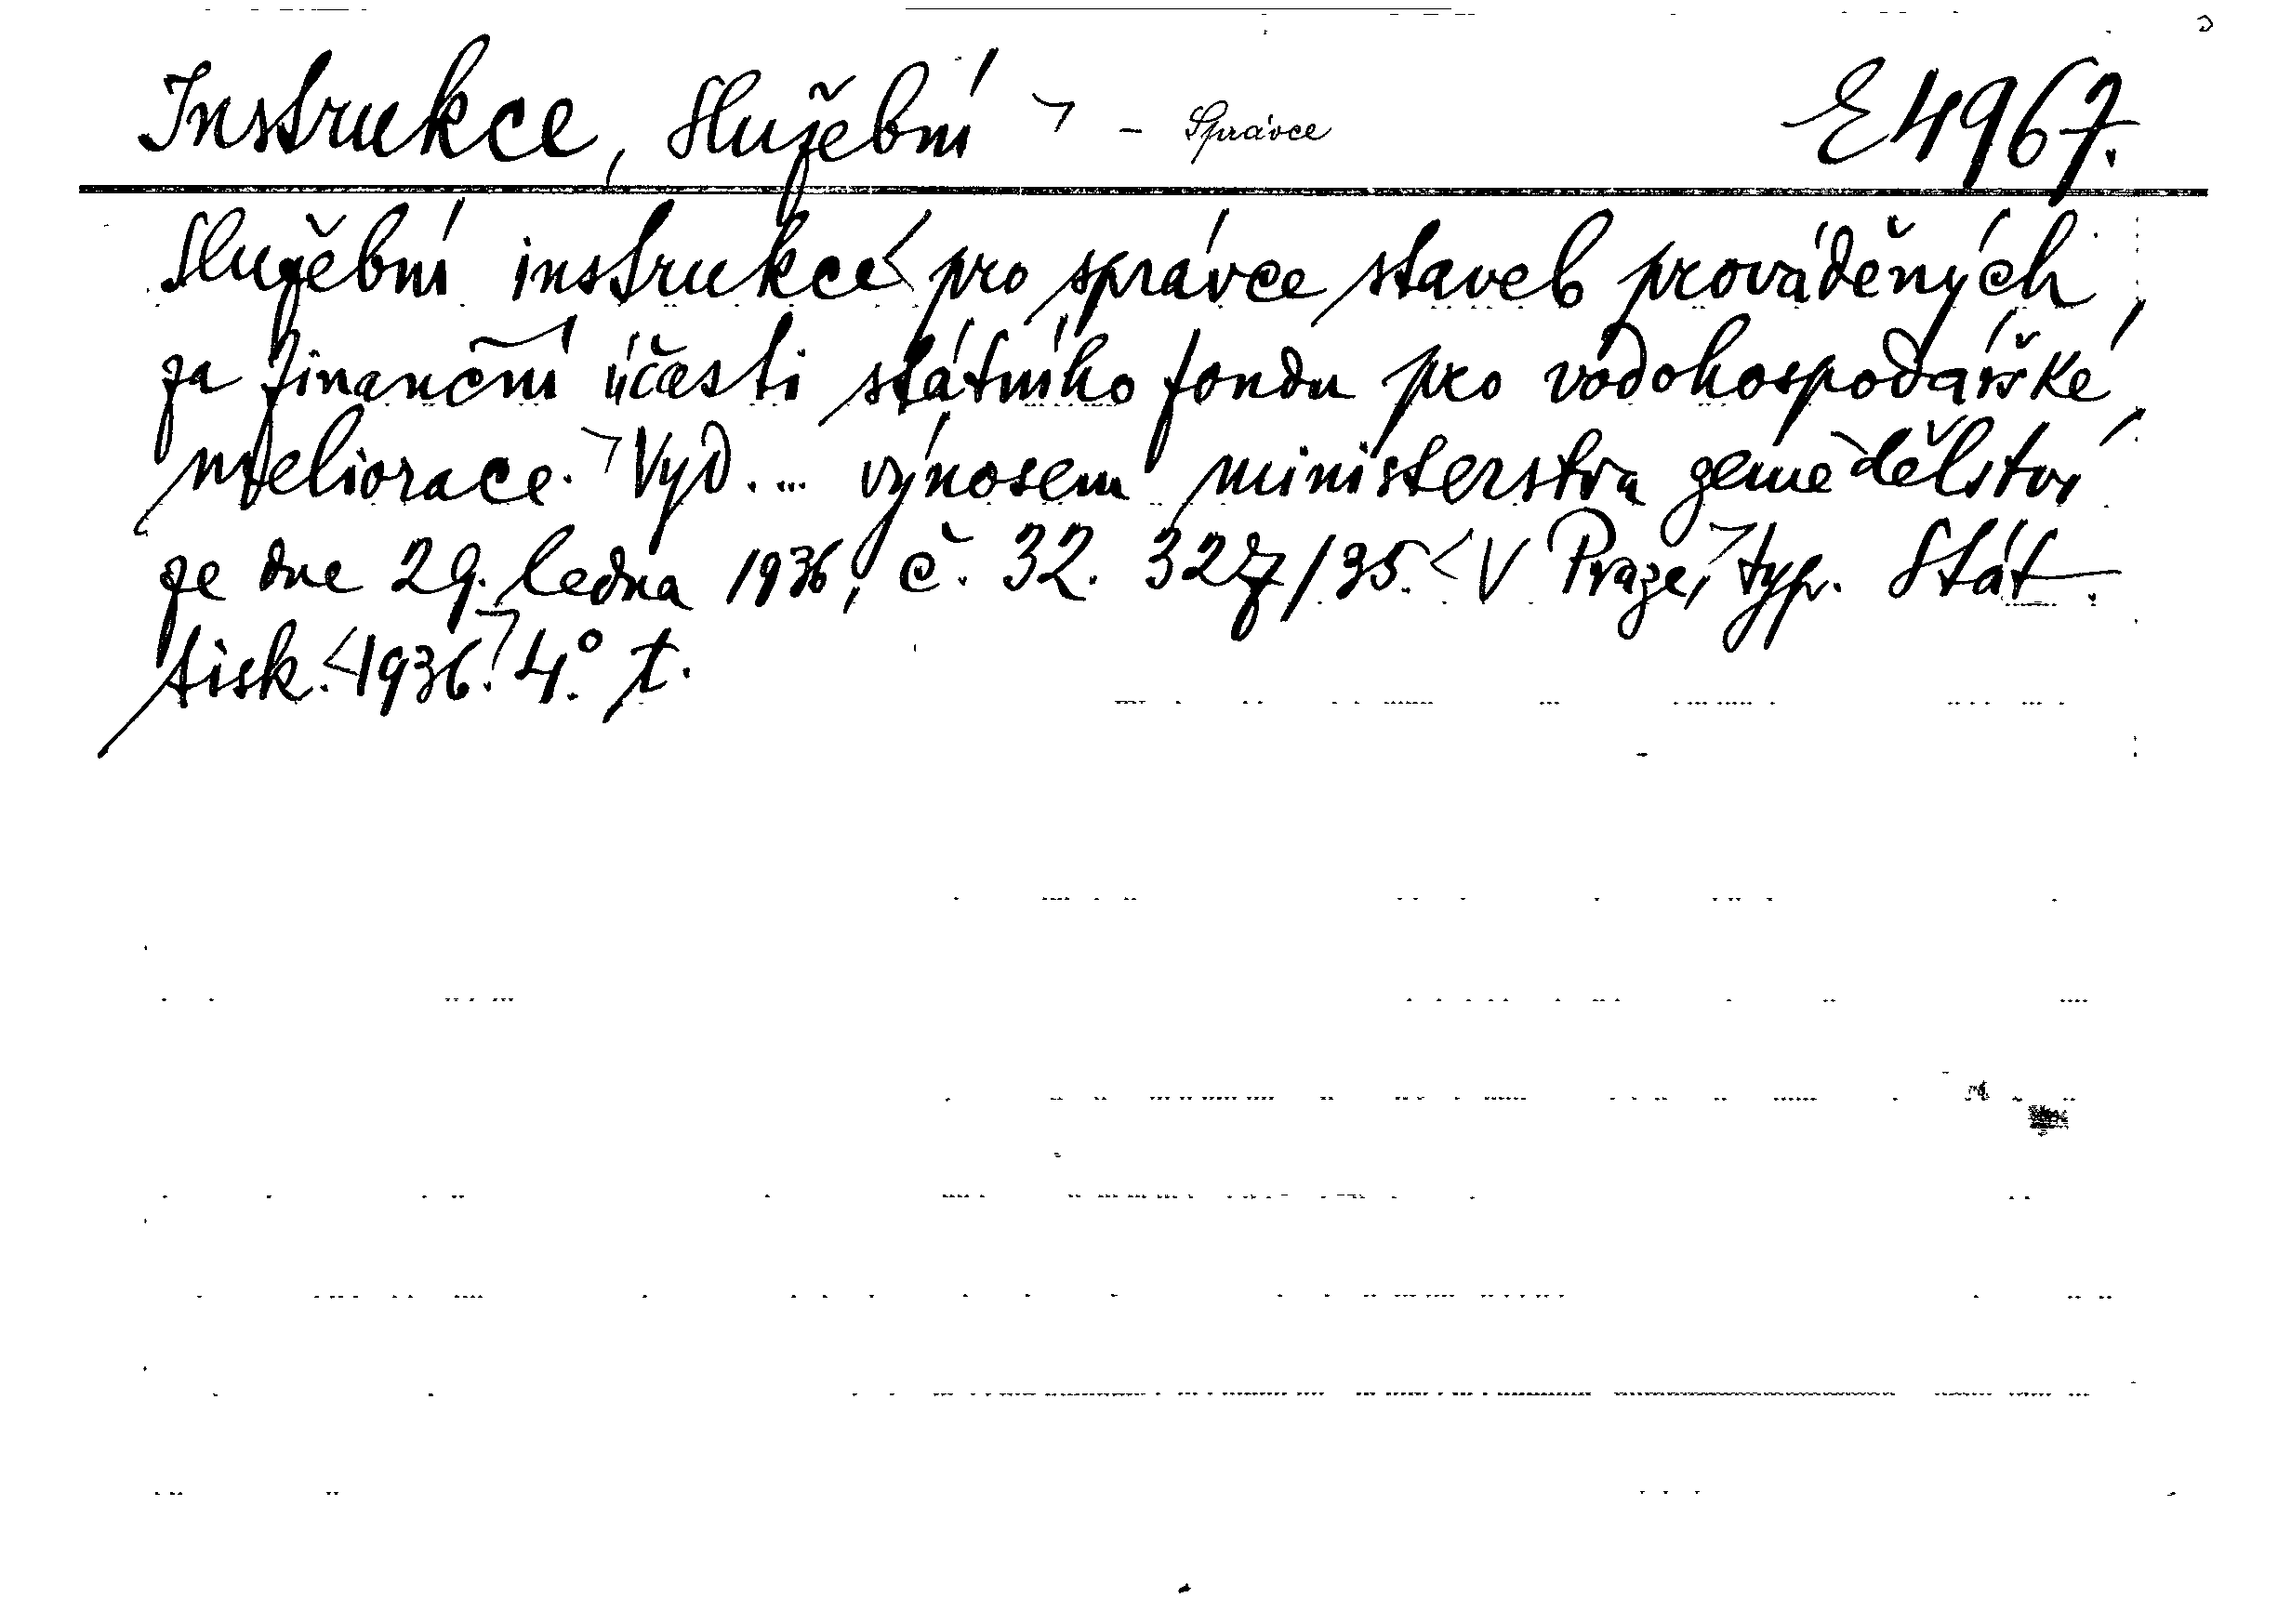 Instrukce, služební ¬ - Správce E 4967.
Služební instrukce < pro správce staveb prováděných
za finanční účasti státního fondu pro vodohospodářské
meliorace. ¬ Vyd. ... výnosem ministerstva zemědělství
ze dne 29. ledna 1936, č. 32. 327/35. < V Praze, ¬ typ. Stát.
tisk. < 1936. ¬ 4.° t.